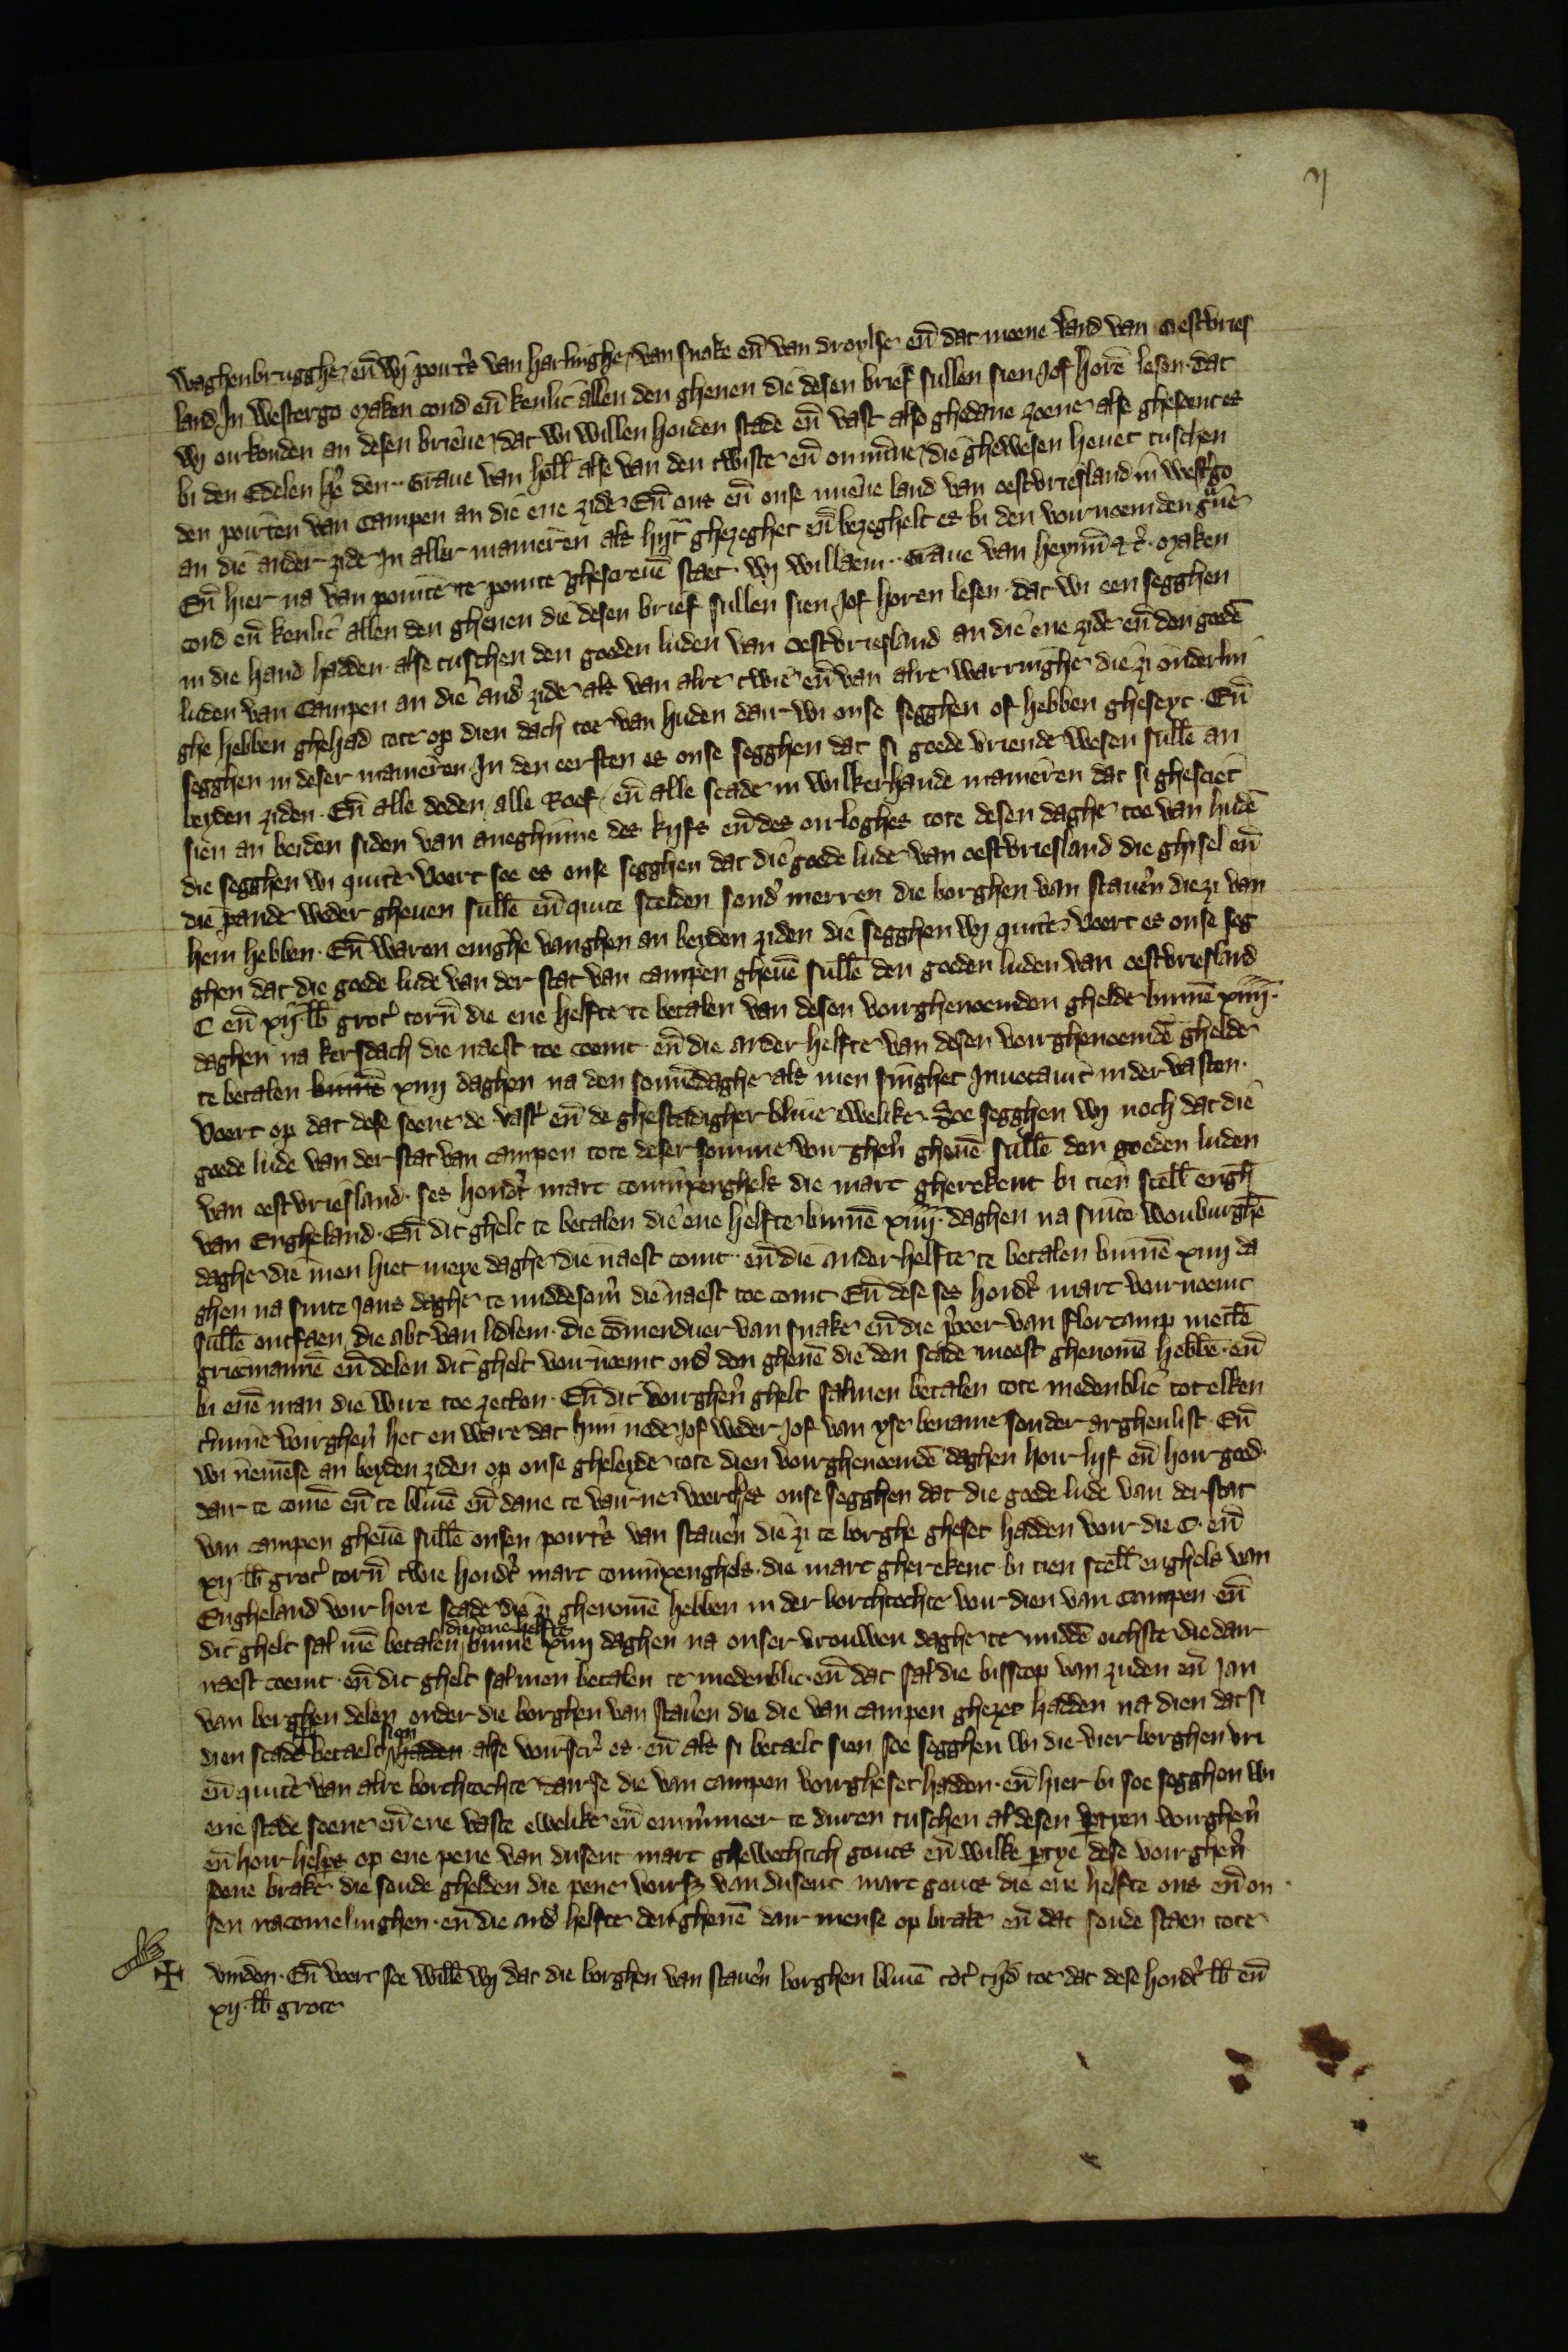 waghenbrugghe, en̄ wij poirtˢ van harlinghe, van snake en̄ van droylse en̄ dat meene land van oestvries
land In Westergo maken cond en̄ kenlic allen den ghenen die desen brief sullen sien Jof horē lesen. dat
wij oirkonden an desen brieue, dat wi willen houden stade en̄ vast also ghedane zoene alse ghesoent es
bi den Edelen hē den .. Graue van holl̄ alse van den twiste en̄ onminne, die ghewesen heuet tuschen
den poirten van Campen an die ene zide En̄ ons en̄ onse mene land van oestvriesland in westgo
an die ander zide In alle manieren als hijt ghezeghet en̄ bezeghelt es bi den voirnoemden gˢue
En̄ hier na van pointe te pointe ghescreuē staet. wij willaem .. Graue van heynn̄ &c̄. maken
cond en̄ kenlic allen den ghenen die desen brief sullen sien Jof horen lesen. dat wi een segghen
in die hand hadden. alse tuschen den goeden luden van oestvriesland an die ene zide en̄ den goedē
luden van Campen an die and̄ zide als van alre twiē en̄ van alre warringhe die zi onderlin
ghe hebben ghehad tote op dien dach toe van huden dair wi onse segghen of hebben gheseyt. En̄
segghen in deser manieren. In den eersten es onse segghen dat si goede vriende wesen sullē an
beyden ziden. En̄ alle doden, alle Roef, en̄ alle scade in wilkerhande manieren dat si ghesciet
sien an beiden siden van aneghinne des kijfs en̄ des orloghes tote desen daghe toe van hudē
die segghen wi quite. Voert soe es onse segghen dat die goede lude van oestvriesland die ghisel en̄
die pande weder gheuen sullē en̄ quite scelden sond̄ merren die borghen van stauen̄ die zi van
hem hebben. En̄ waren enighe vanghen an beyden ziden die segghen wij quite. Voert es onse seg
ghen dat die goede lude van der stat van campen gheuē sullē den goeden luden van oestvriesland
C en̄ xij lb̄ grot̄ torn̄ die ene helfte te betalen van desen voirghenoemden ghelde binnē xiiij.
daghen na kersdach die naest toe coemt en̄ die ander helfte van desen voirghenoemdē ghelde
te betalen binnē xiiij daghen na den sonnēdaghe als men singhet Inuocauit in der vasten.
Voert op dat dese soene de vast̄ en̄ de ghestadigher bliue ewelike. Soe segghen wij noch dat die
goede lude van der stat van campen tote deser somme voirghen̄ gheuē sullē den goeden luden
van oestvriesland. ses hondt̄ marc comūxenghels die marc gherekent bi tien scell̄ engh̄
van Engheland. En̄ dit ghelt te betalen die ene helfte binnē xiiij. daghen na sinte wouburghē
daghe die men hiet meye daghe die naest comt. en̄ die ander helfte te betalen binnē xiiij da
ghen na sinte Jans daghe te middesom̄ die naest toe comt En̄ dese ses hondt̄ marc voirnoemt
sullē ontfaen, die abt van lidlem. die cōmenduer van snake en̄ die p̄oer van florcamp mettē
grietmannē en̄ delen dit ghelt voirnoemt ond̄ den ghenē die den scade meest ghenomē hebbē. en̄
bi enē man die wire toe zetten. En̄ dit voirghen̄ ghelt salmen betalen tote medenblic tot elken
t̄minē voirghen̄ het en ware dat him node Jof weder Jof van yse bename sonder arghenlist. En̄
wi nemēse an beyden ziden op onse gheleyde tote dien voirghenoemdē daghen hoir lijf en̄ hoir goed.
dair te comē en̄ te bliuē en̄ dane te vairne, voert es onse segghen dat die goede lude van der stat
van campen gheuē sullē onsen poirtˢ van stauen̄ die zi te borghe gheset hadden voir die C. en̄
xij lb̄ grot̄ torn̄ twie hondt̄ marc comūxenghels. die marc gherekent bi tien scell̄ enghels van
Engheland voir hore scade die zi ghenomē hebben in der borchtochte voir dien van Campen en̄
dit ghelt sal mē betalen die ene helfte binnē xiiij daghen na onser vrouwen daghe te middē oichste die dair
naest coemt. en̄ dit ghelt salmen betalen te medenblic. en̄ dat sal die bisscop van zuden en̄ Jan
van berghen delen onder die borghen van stauen die die van campen ghezet hadden na dien dat si
dien scade betaelt sien hadden alse voirscˢ es. en̄ als si betaelt sien, soe segghen wi die vier borghen vri
en̄ quite van alre borchtochte dair se die van campen voirgheset hadden. en̄ hier bi soe segghen wi
ene stade soene en̄ ene vaste ewelike en̄ emmmeer te duren tuschen al desen ptyen voirghen̄
en̄ hoir helps op ene pene van dusent marc ghewechtich gouts en̄ wilke ptye dese voirghen̄
soene brake die soude ghelden die pene voirs van dusent marc gouts die ene helfte ons en̄ on
sen nacomelinghen. en̄ die and̄ helfte den ghenē dair mense op brake en̄ dat soude staen tote
vinden. En̄ voert soe willē wij dat die borghen van stauen̄ borghen bliuē tot̄ tijd toe dat dese hondt̄ lb̄ en̄
xij. lb̄ grote